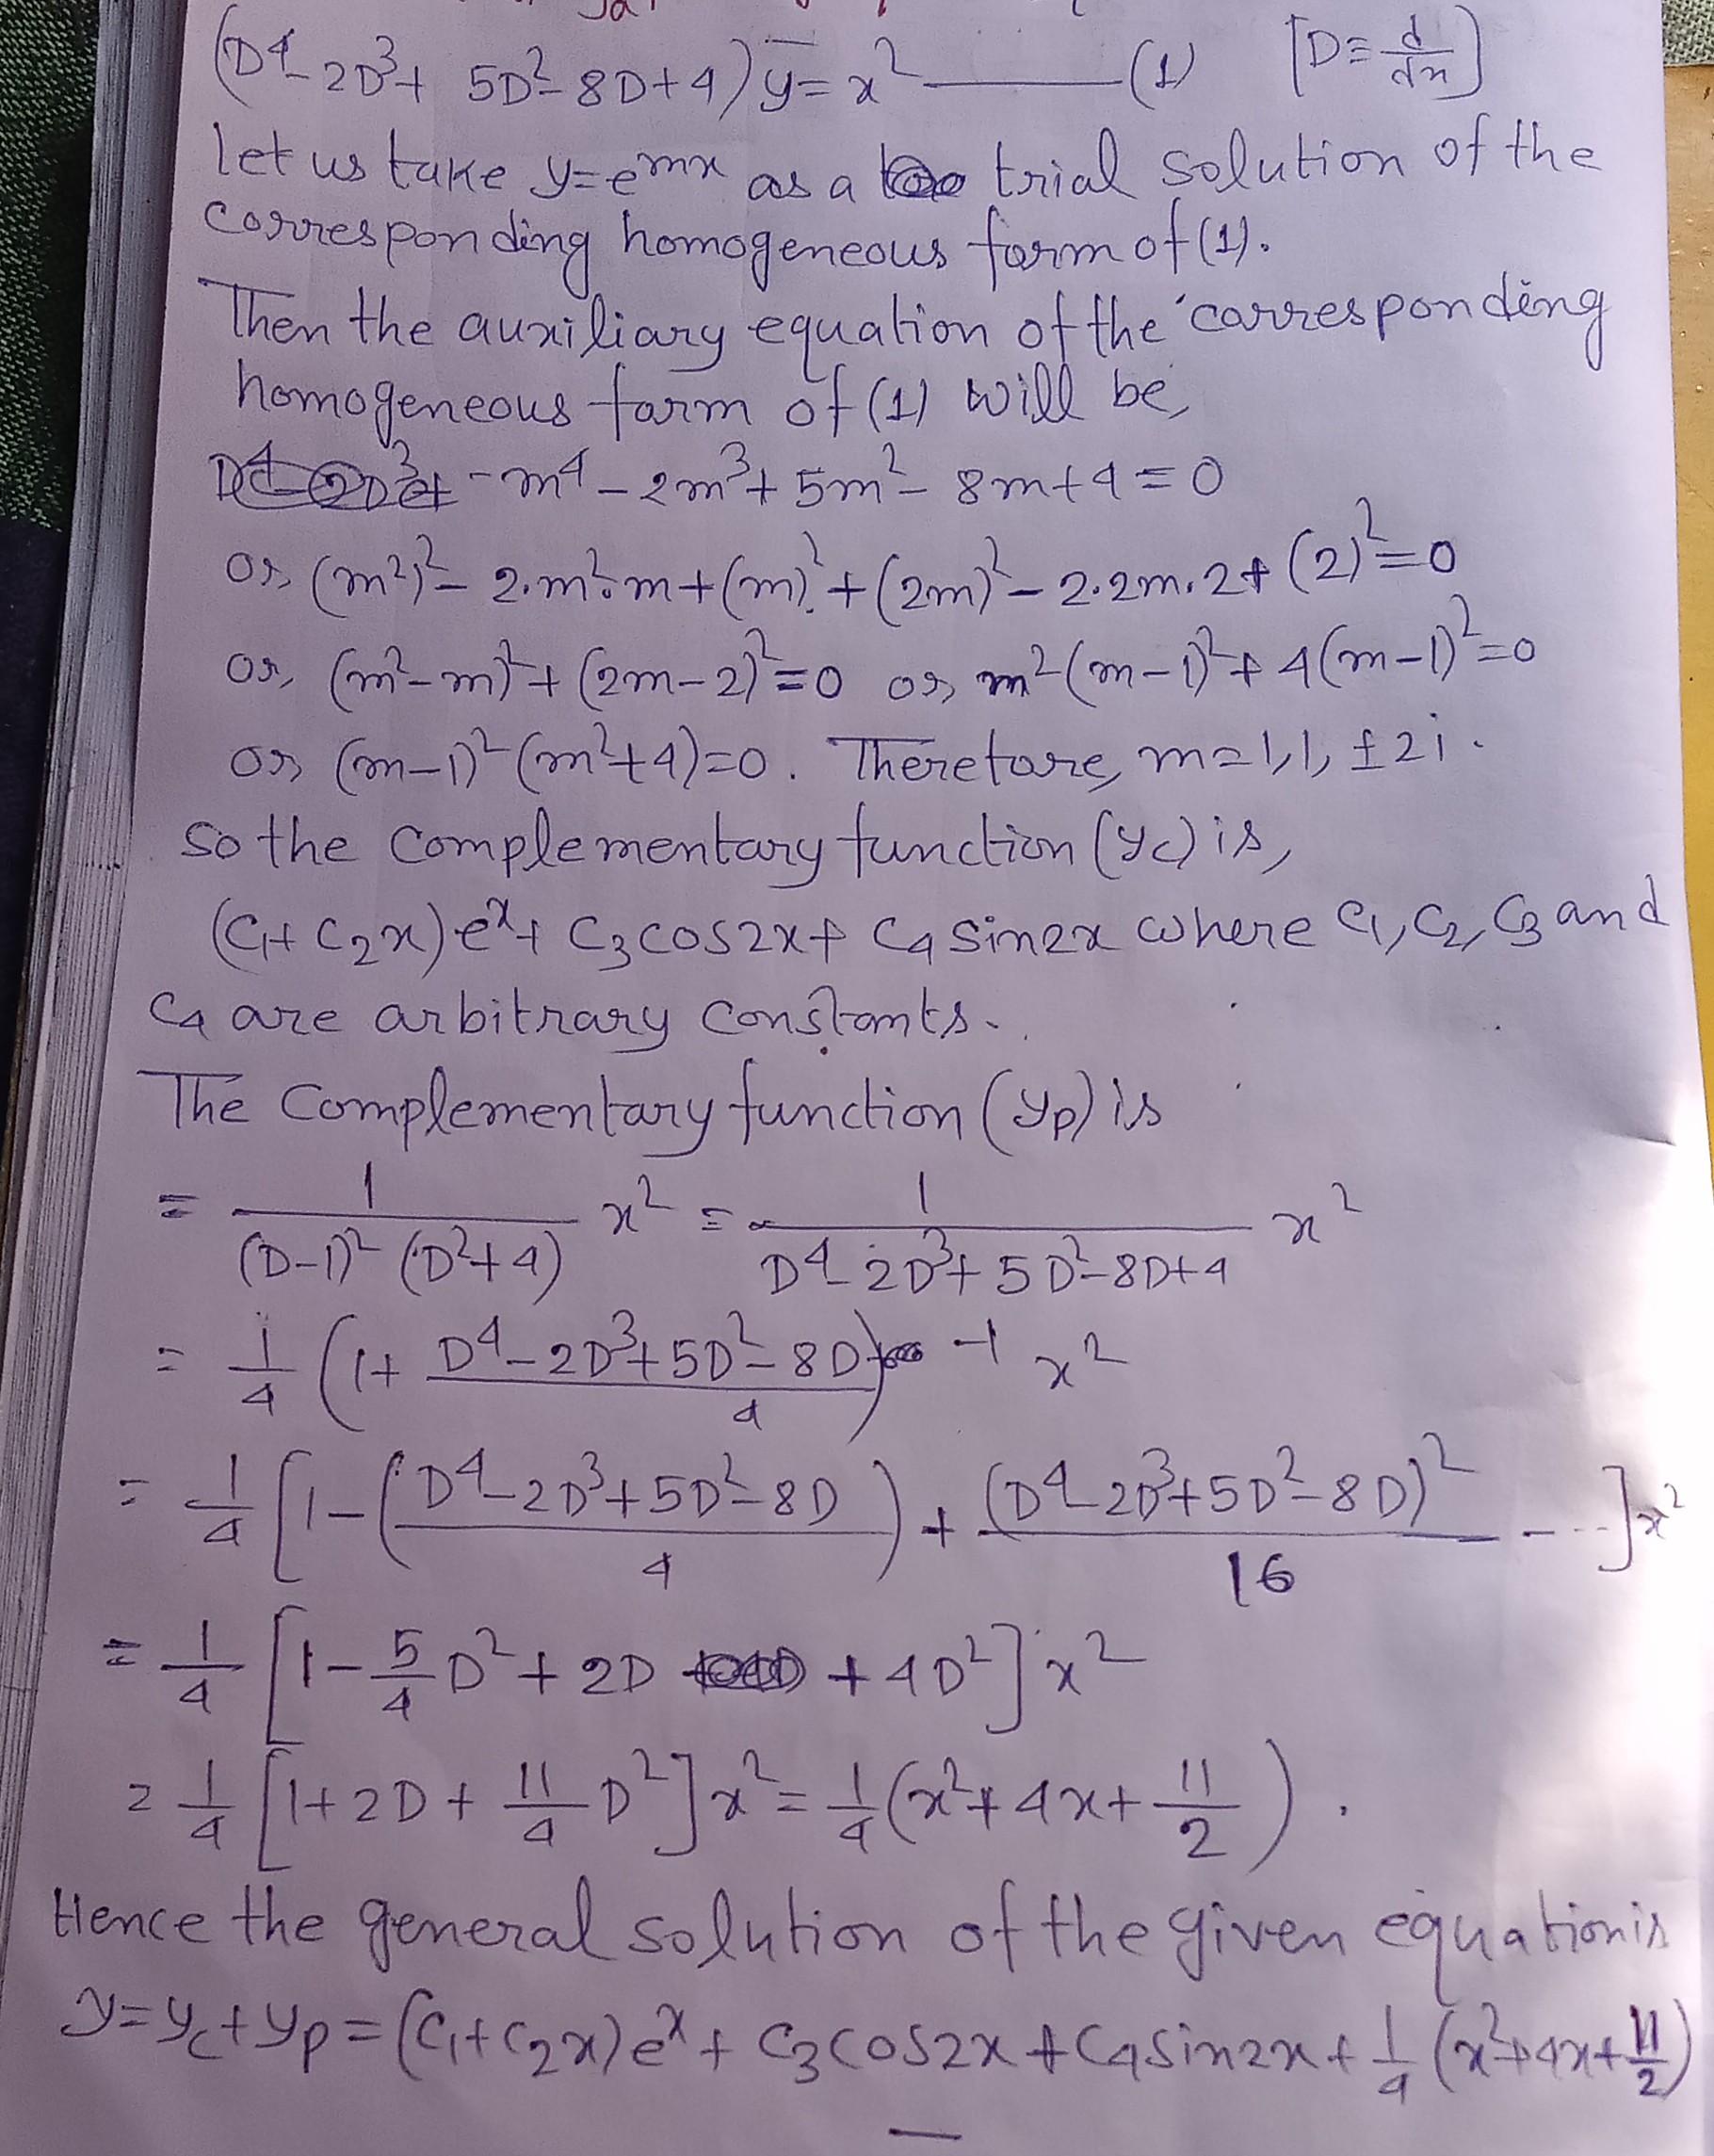 (D⁴-2D³+5D²-8D+4)y=x² ——— (1) [D≡d/dx]
let us take y=eᵐˣ as a trial solution of the
corresponding homogeneous form of (1).
Then the auxiliary equation of the corresponding
homogeneous form of (1) will be,
-m⁴-2m³+5m²-8m+4=0
or, (m²)²-2.m².m+(m)²+(2m)²-2.2m.2+(2)²=0
or, (m²-m)²+(2m-2)²=0 or, m²(m-1)²+4(m-1)²=0
or, (m-1)²(m²+4)=0. Therefore, m=1,1,±2i.
So the complementary function (yc) is,
(C₁+C₂x)eˣ+C₃cos2x+C₄sin2x where C₁,C₂,C₃ and
C₄ are arbitrary constants.
The Complementary function (yp) is
= 1/((D-1)²(D²+4)) x² = 1/(D⁴-2D³+5D²-8D+4) x²
= 1/4 (1+ (D⁴-2D³+5D²-8D)/4)⁻¹ x²
= 1/4 [1-((D⁴-2D³+5D²-8D)/4)+(D⁴-2D³+5D²-8D)²/16 - ...]x²
= 1/4 [1-5/4 D²+2D+4D²]x²
= 1/4 [1+2D+11/4 D²]x²=1/4(x²+4x+11/2).
Hence the general solution of the given equation is
y=yc+yp=(C₁+C₂x)eˣ+C₃cos2x+C₄sin2x+1/4(x²+4x+11/2)